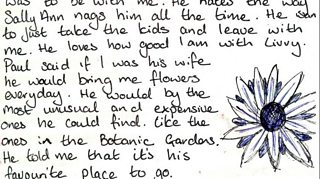 was to be with me. He hates the way
Sally Ann nags him all the time. He
to just take the kids and leave with
me. He loves how good I am with Livvy.
Paul said if I was his wife
he would bring me flowers
everyday. He would by the
most unusual and expensive
ones he could find. Like the
ones in the Botanic Gardens.
He told me that it's his
favourite place to go.